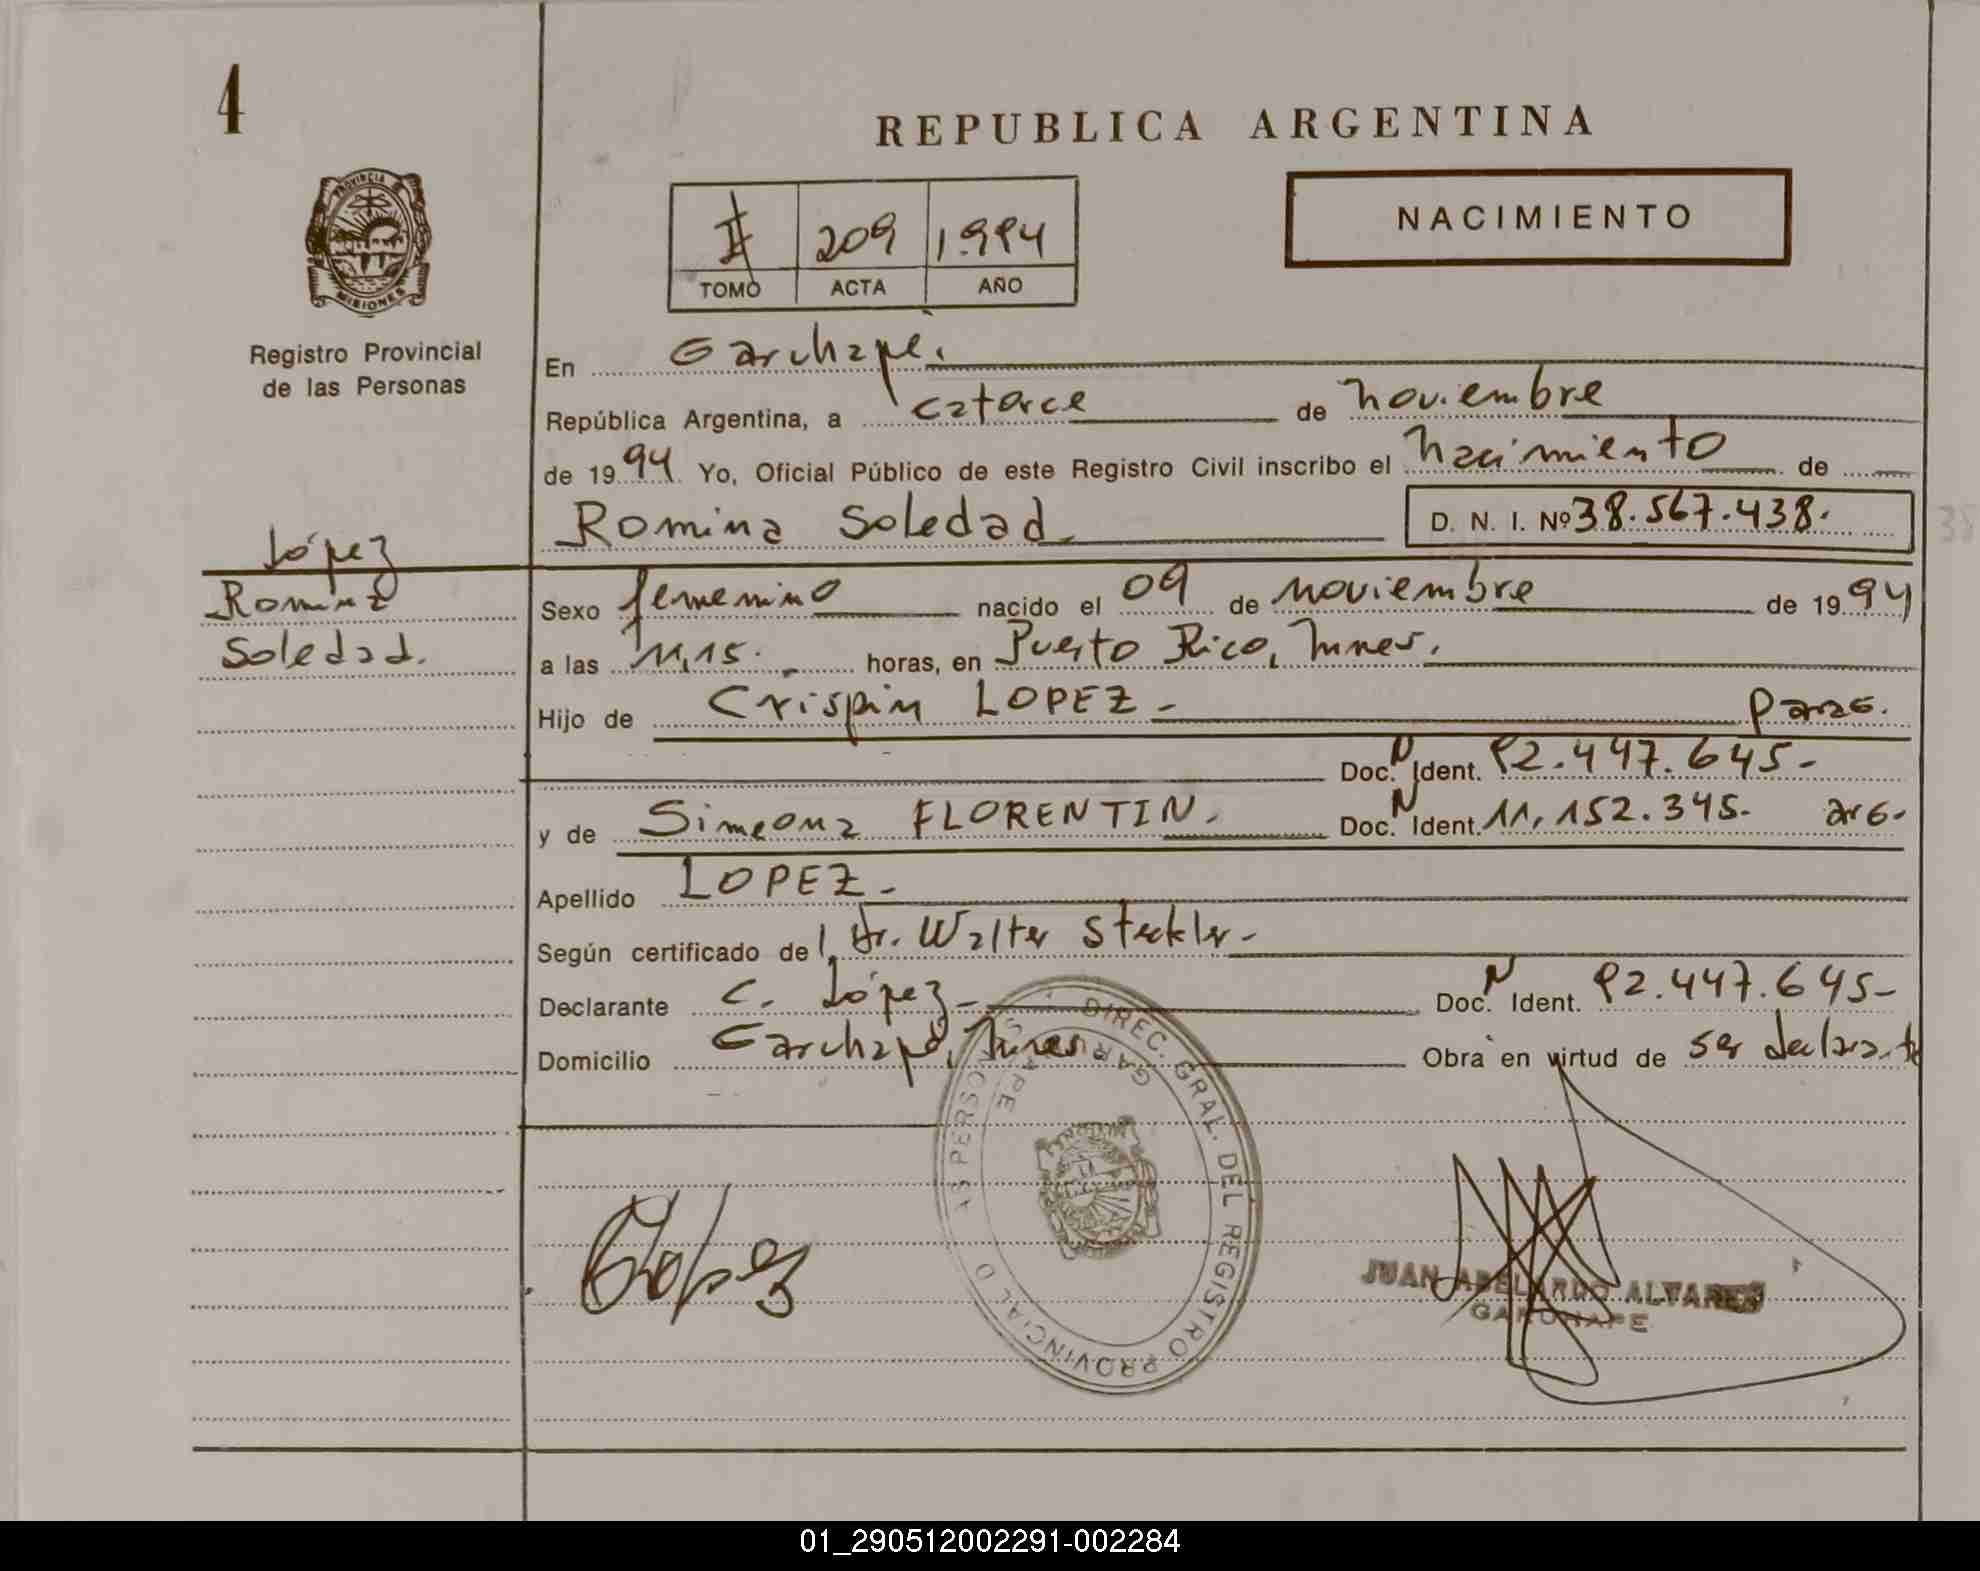 4
REPUBLICA ARGENTINA
NACIMIENTO
II 209 1.994
TOMO ACTA AÑO
PROVINCIA DE MISIONES
Registro Provincial
de las Personas
En Garuhapé.
República Argentina, a catorce de noviembre
de 1994 Yo, Oficial Público de este Registro Civil inscribo el nacimiento de
Romina Soledad D. N. I. Nº 38.567.438.
López
Romina
Soledad.
Sexo femenino nacido el 09 de noviembre de 1994
a las 11,15. horas, en Puerto Rico, Mnes.
Hijo de Crispin LOPEZ - parag.
Doc. N Ident. 92.447.645-
y de Simeona FLORENTIN. Doc. N Ident. 11.152.345. arg.
Apellido LOPEZ -
Según certificado de Dr. Walter Steckler-
Declarante C. López - Doc. N Ident. 92.447.645-
Domicilio Garuhapé, Mnes Obra en virtud de ser declarante
DIREC. GRAL. DEL REGISTRO PROVINCIAL D AS PERSONAS
GARUHAPE
MISIONES
López
JUAN ABELARDO ALTAREZ
GARUHAPE
01_290512002291-002284